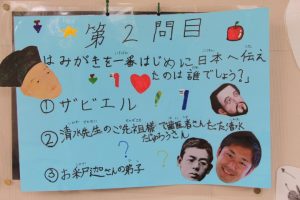 第2問目
はみがきを一番はじめに日本へ伝え
たのは誰でしょう?」
① ザビエル
② 清水先生のご先祖様で歯医者さんだった清水
③ お釈迦さんの弟子